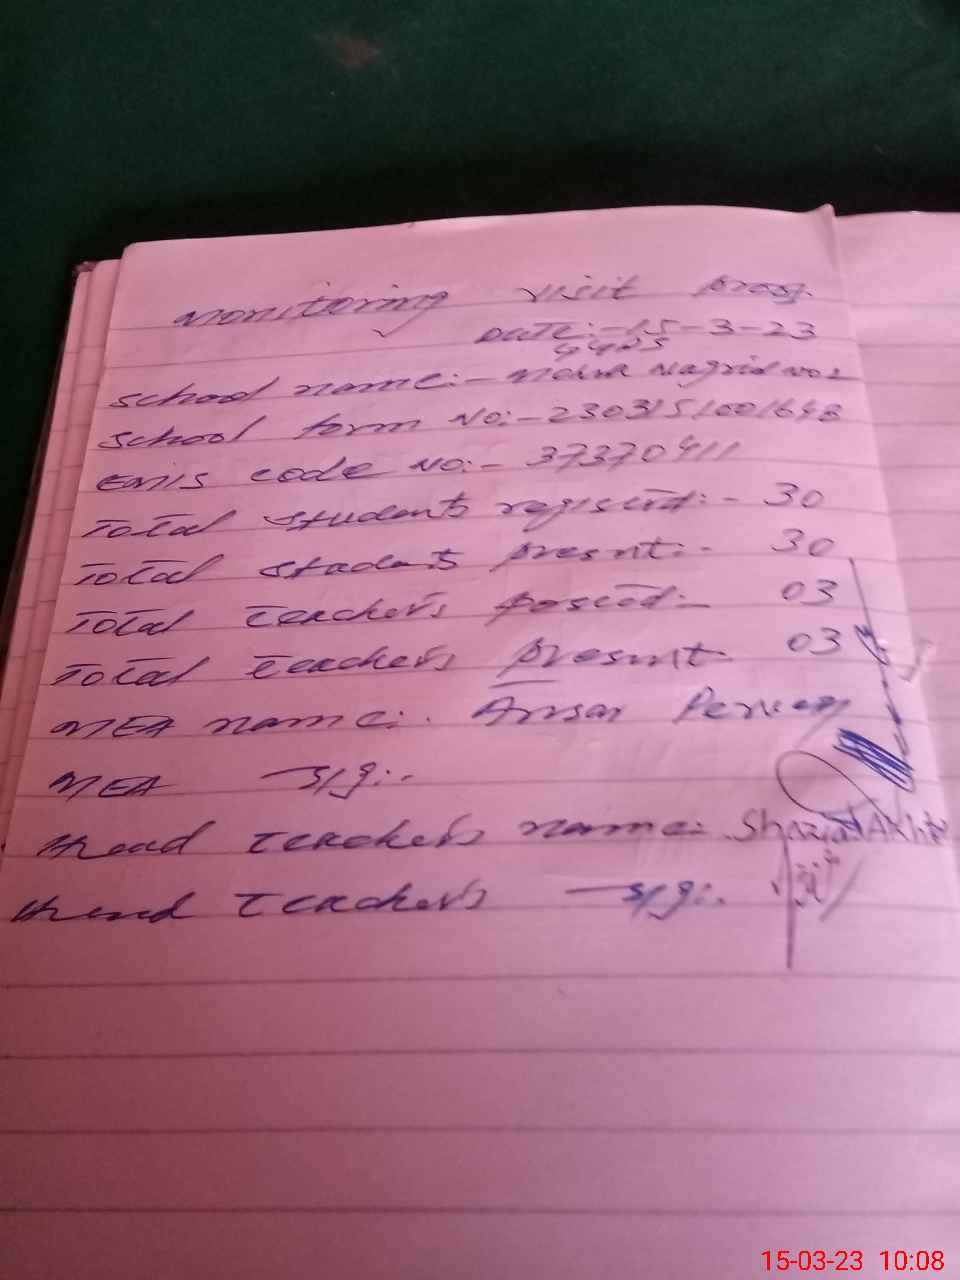 Monitoring visit prog.
Date:- 15-3-23
GGPS
School name:- Mohra Nagrial No 2
School form No:- 2303151001648
Emis code No:- 37370411
Total students registed:- 30
Total students present:- 30
Total Teacher's posted:- 03
Total teacher's present 03
MEA name:. Ansar Pervez
MEA Sig:.
Head Teacher's name: Shazia Akhter
Head Teacher's Sig:.
15-03-23 10:08